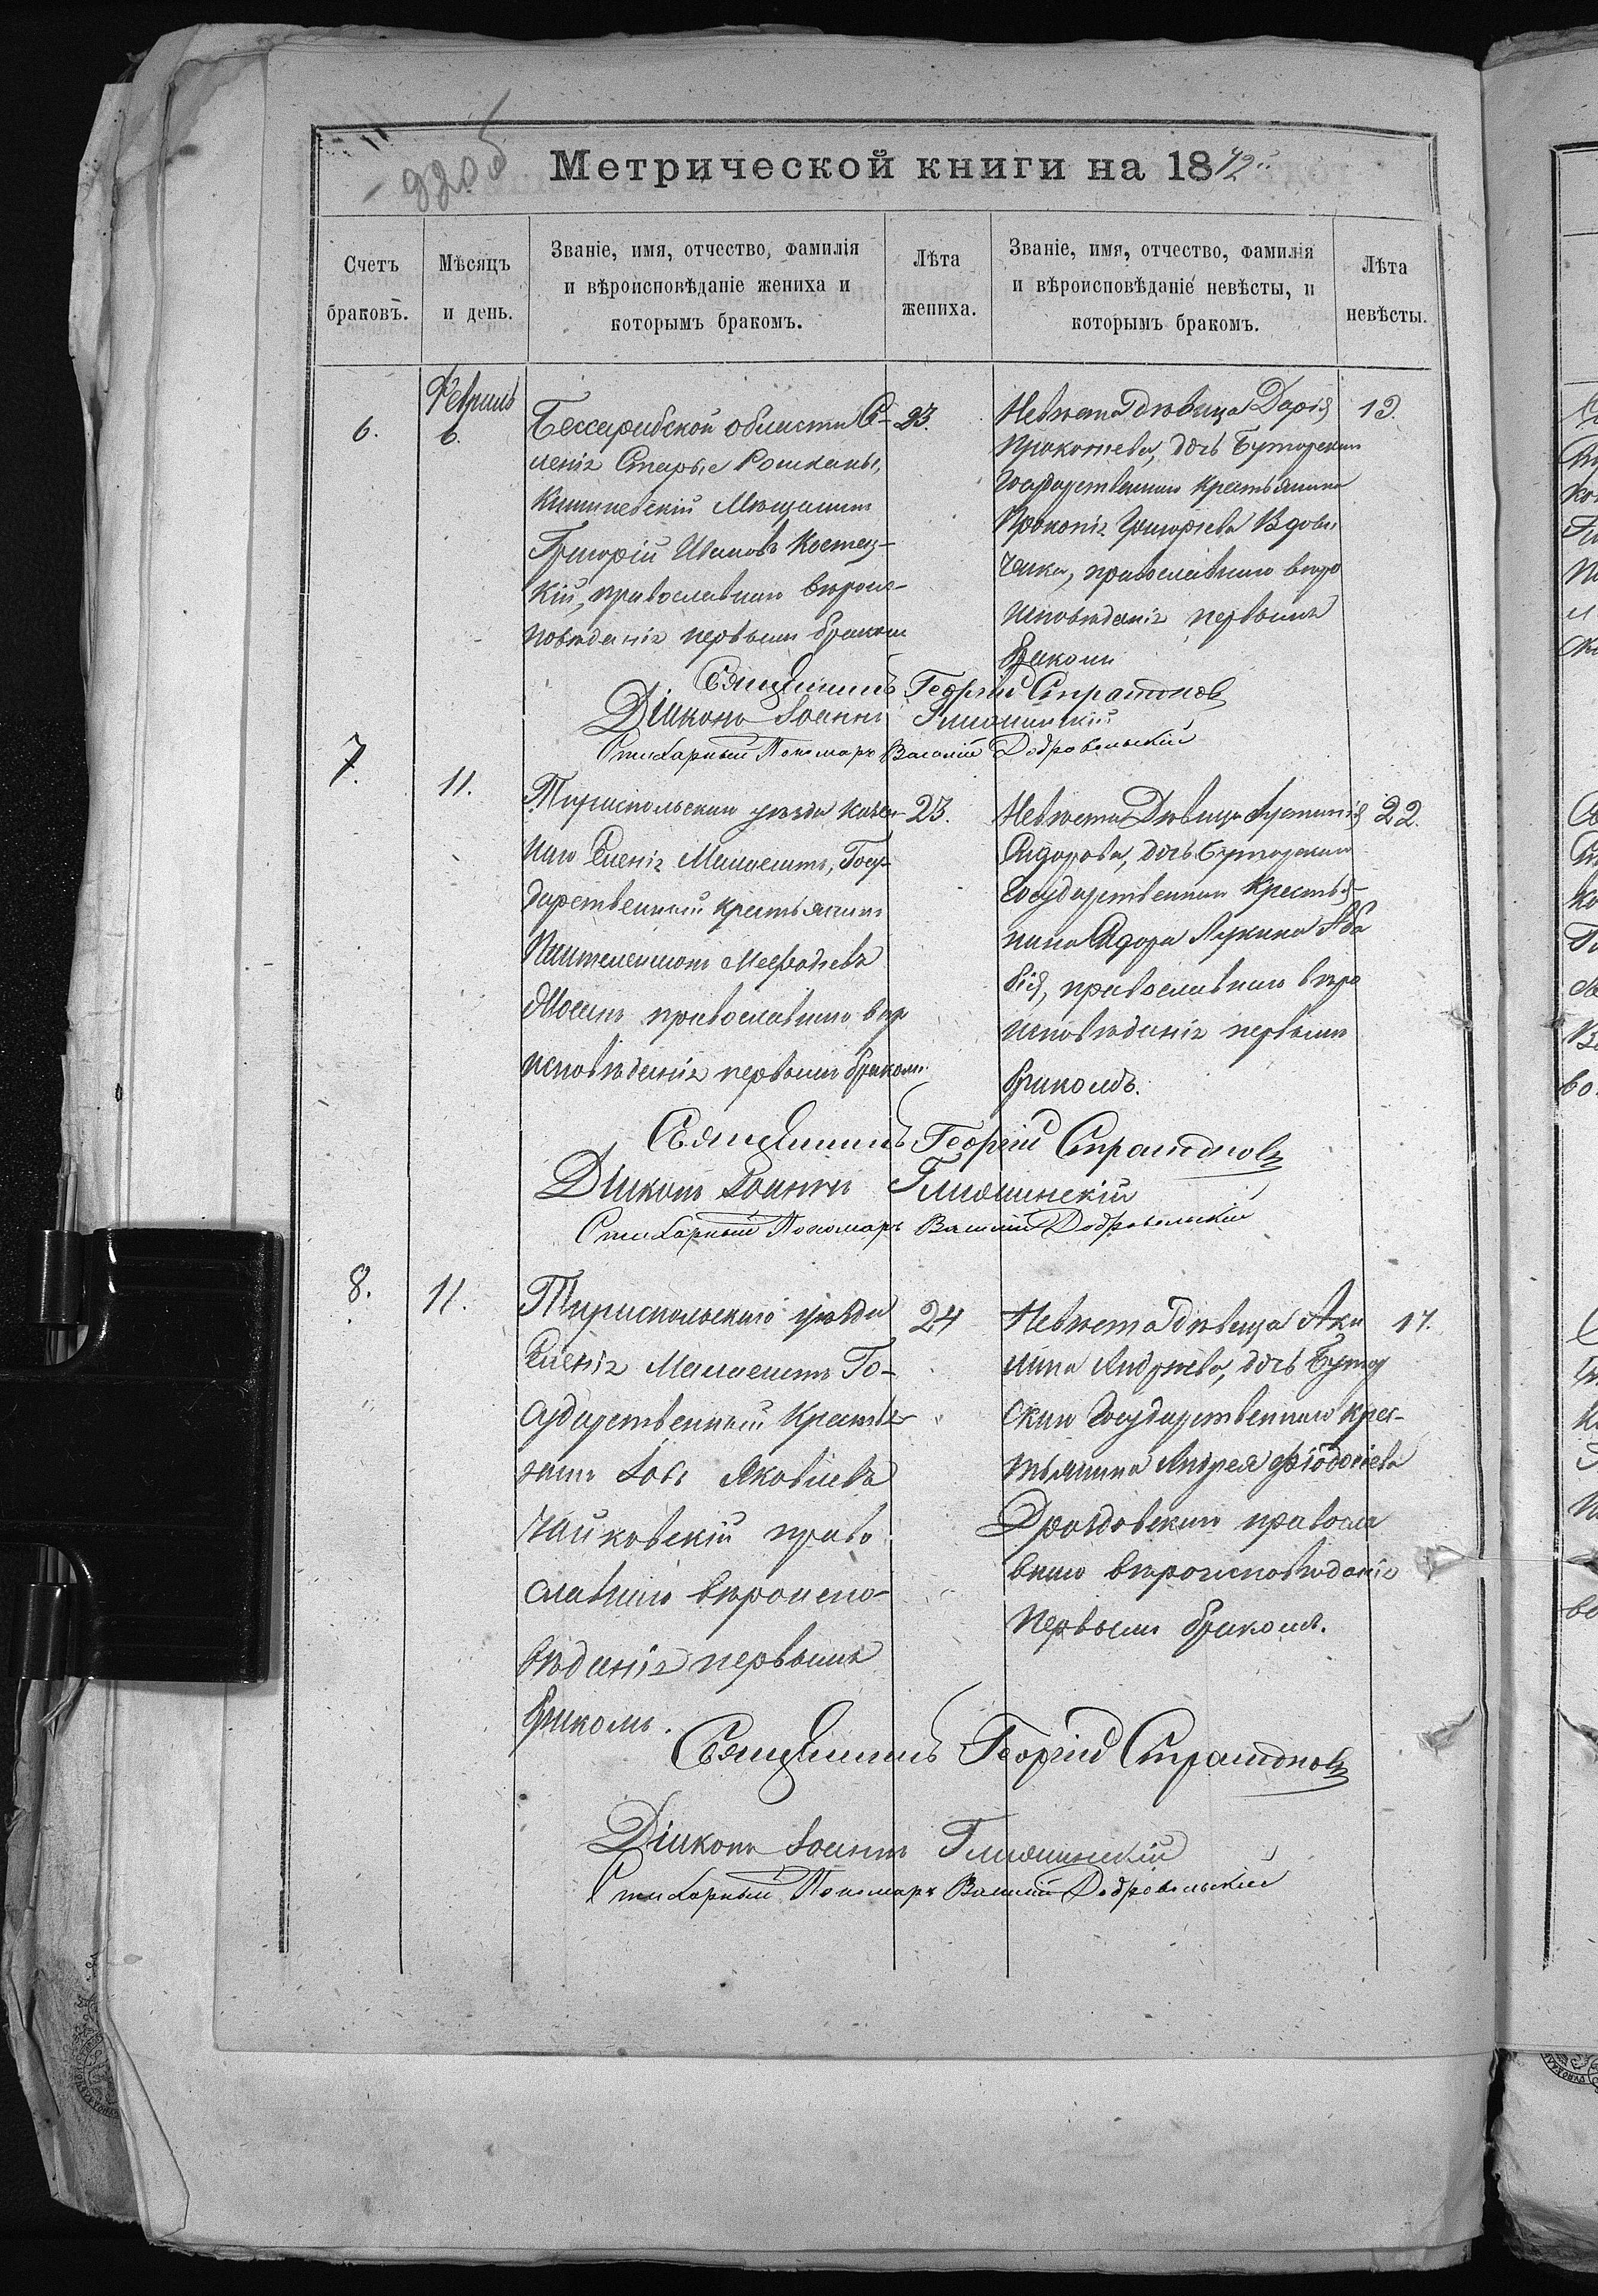 920б
Метрической книги на 1872й
Счетъ браковъ.
Мѣсяцъ и день.
Званіе, имя, отчество, фамилія
и вѣроисповѣданіе жениха и
которымъ бракомъ.
Лѣта жениха.
Званіе, имя, отчество, фамилія
и вѣроисповѣданіе невѣсты, и
которымъ бракомъ.
Лѣта невѣсты.
6.
Февраль
6.
Бессарабской области Се-
ленія Старые Рошканы,
Кишиневскій Мѣщанинъ
Григорій Ивановъ Костец-
кій, православнаго вѣроис-
повѣданія первымъ бракомъ
23.
Невѣста дѣвица Дарія
Прокопіева, дочь Буторскаго
Государственнаго Крестьянина
Прокопія Григоріева Вдови
ченка, православнаго вѣро
исповѣданія первымъ
бракомъ
19.
Священникъ Георгій Стратоновъ
Діаконъ Іоаннъ
Стихарный Пономарь Василій Добровольскій
7.
11.
Тираспольскаго уѣзда Казен-
наго Селенія Малаештъ, Госу-
дарственный Крестьянинъ
Пантелеимонъ Меѳодіевъ
православнаго вѣр
исповѣданія первымъ бракомъ.
23.
Невѣста Дѣвица
Сидорова, дочь Буторскаго
Государственнаго Крестья-
нина Сидора Лукина
православнаго вѣро
исповѣданія первымъ
бракомъ.
22.
Священникъ Георгій Стратоновъ
Діаконъ Іоаннъ
Стихарный Пономарь Василій Добровольскій
8.
11.
Тираспольскаго уѣзда
Селенія Малаештъ Го-
сударственный Крестья-
нинъ Іовъ Яковлевъ
Чайковскій право
славнаго вѣроиспо-
вѣданія первымъ
бракомъ.
24
Невѣста дѣвица Аки
лина Андреева, дочь Бутор
скаго Государственнаго крес-
тьянина Андрея Ѳеодосіева
Дроздовскаго правосла
внаго вѣроисповѣданія
первымъ бракомъ.
17.
Священникъ Георгій Стратоновъ
Діаконъ Іоаннъ
Стихарный Пономарь Василій Добровольскій